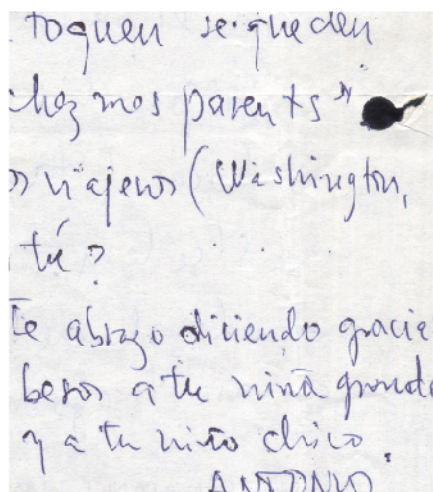 toquen se queden
chez mos parents"
os viajeros (Washington,
tú?
Te abrazo diciendo gracia
besos a tu niña grande
y a tu niño chico.
ANTONIO